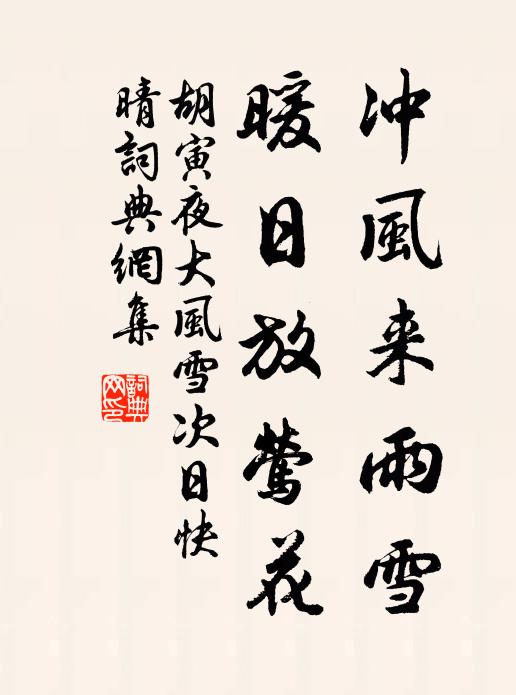 冲風来雨雪
暖日放鶯花
胡寅夜大風雪次日快
晴詞典網集
詞典网印